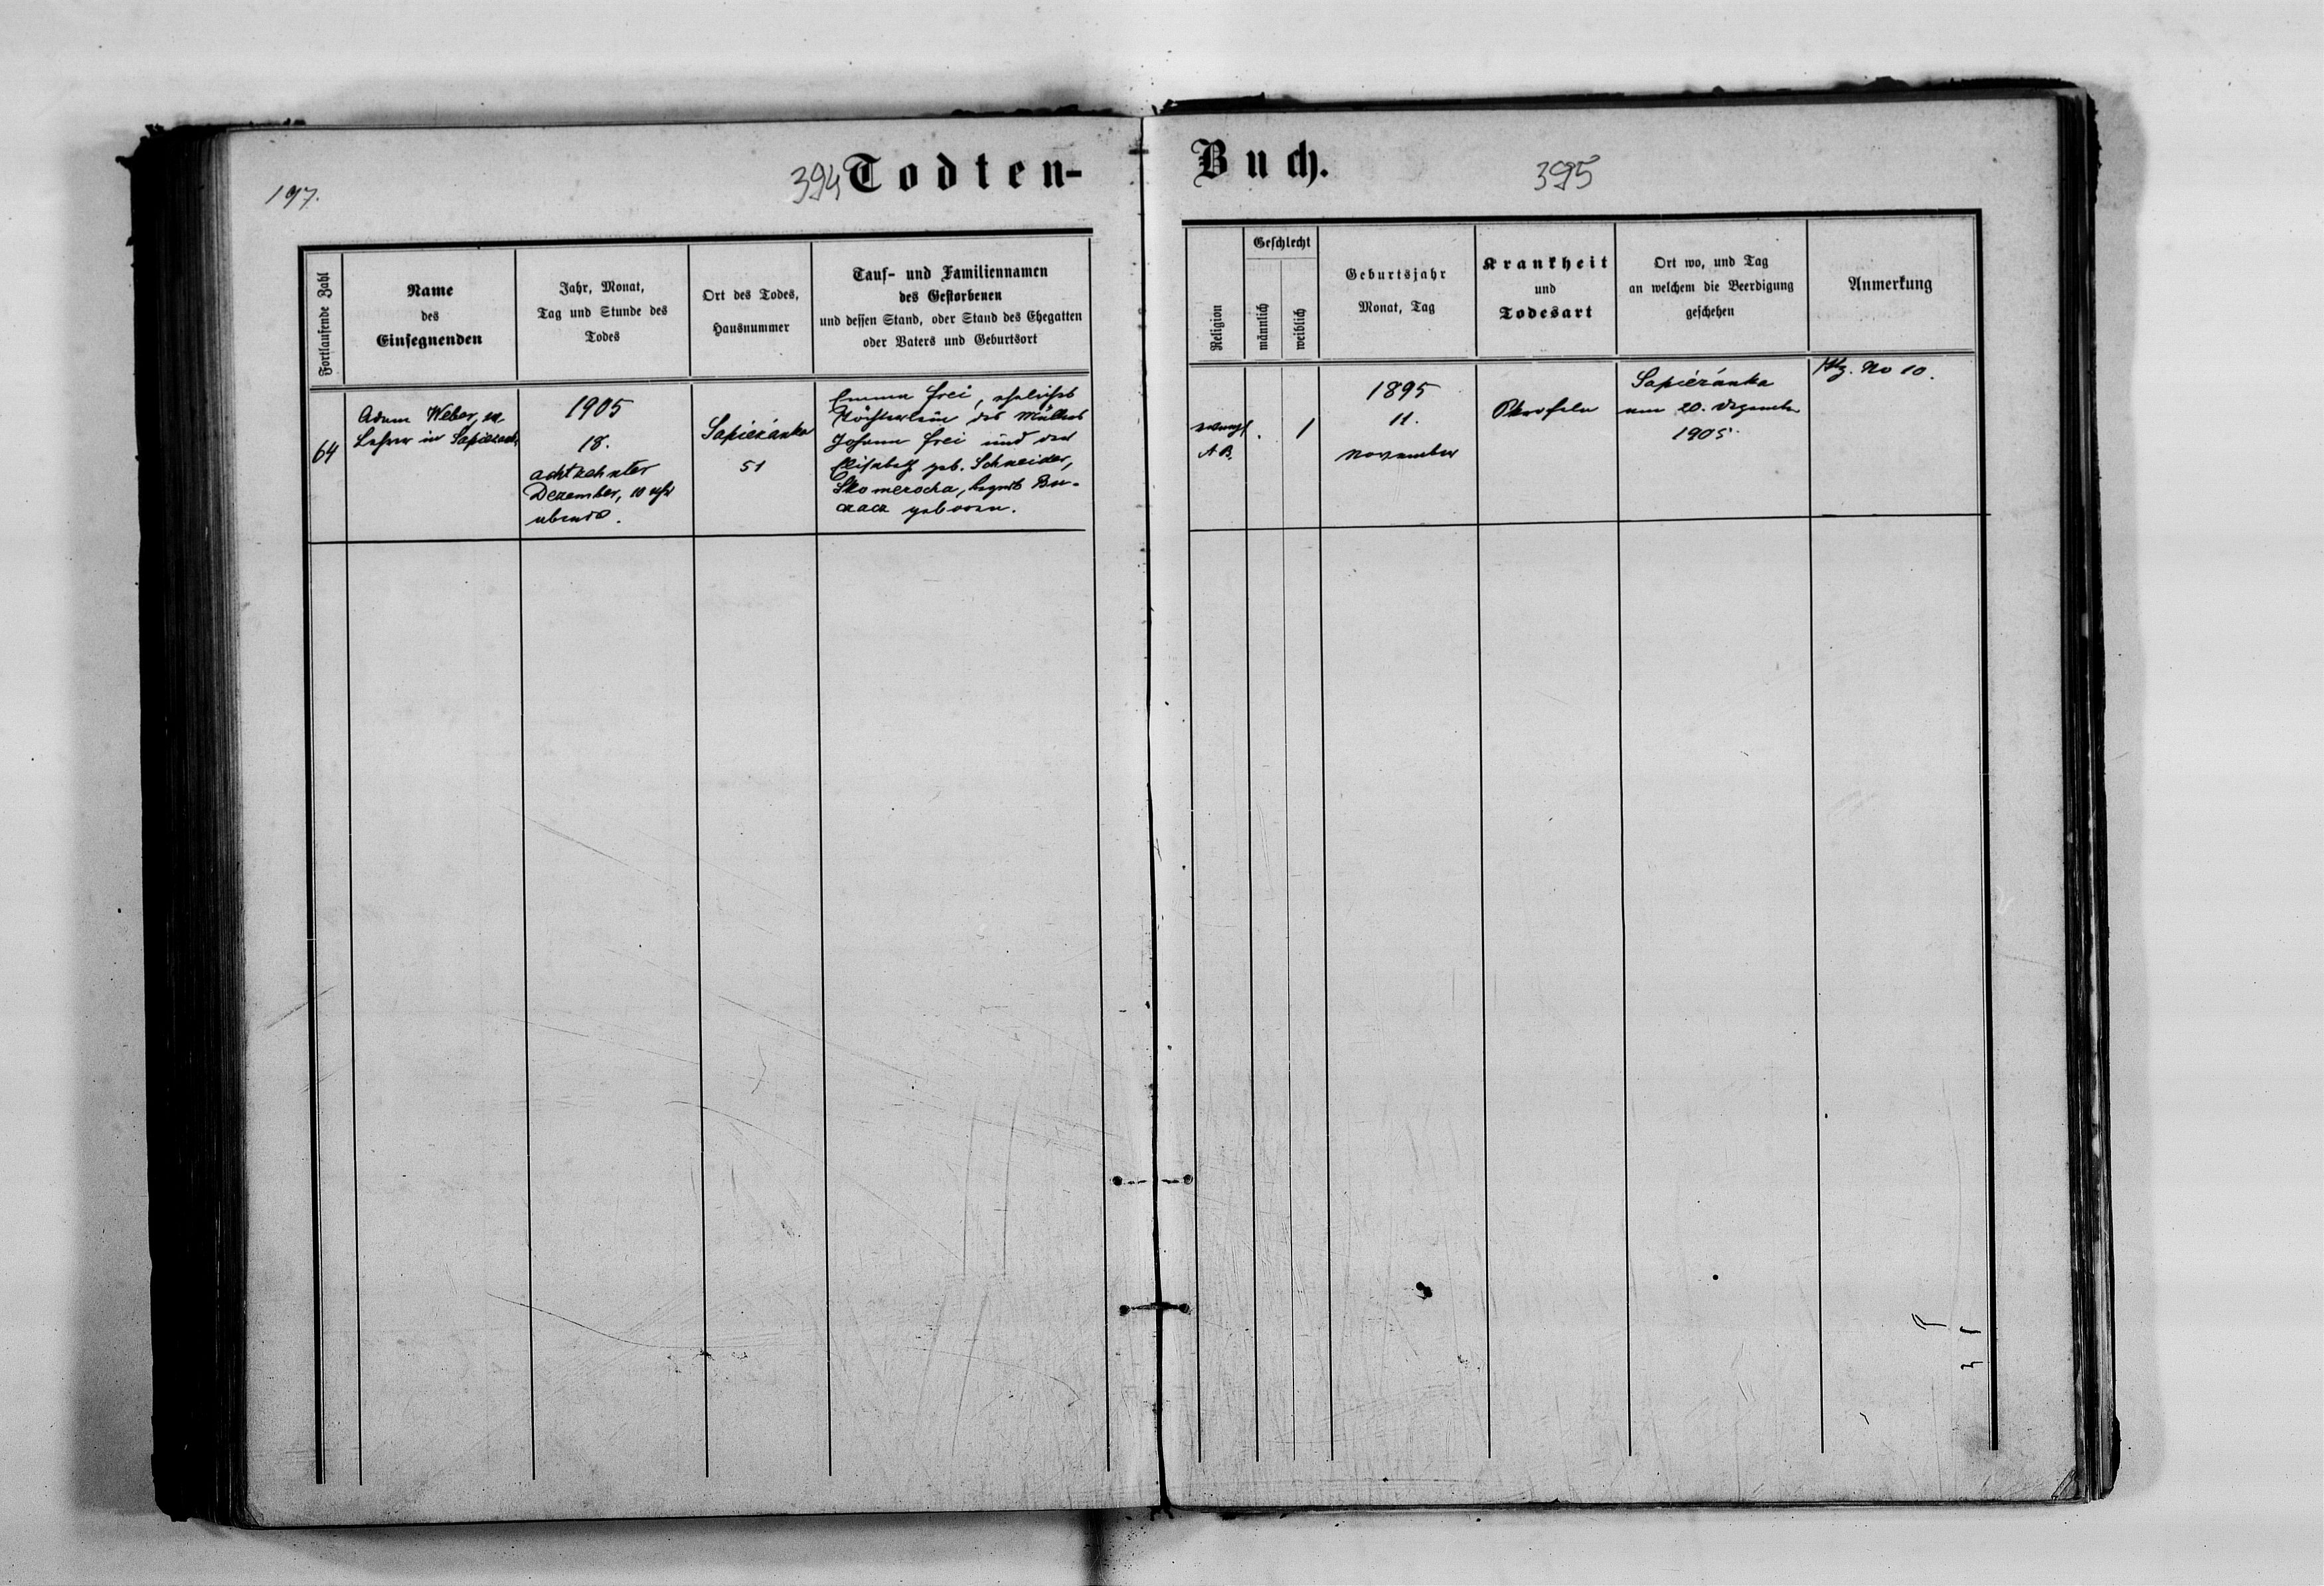 197.
394
Todten-
Buch.
395
Fortlaufende Zahl
Name
des
Einsegnenden
Jahr, Monat,
Tag und Stunde des
Todes
Ort des Todes,
Hausnummer
Tauf- und Familiennamen
des Gestorbenen
und dessen Stand, oder Stand des Ehegatten
oder Vaters und Geburtsort
Religion
Geschlecht
männlich
weiblich
Geburtsjahr
Monat, Tag
Krankheit
und
Todesart
Ort wo, und Tag
an welchem die Beerdigung
geschehen
Anmerkung
64
Adam Weber, ev.
Lehrer in
1905
18.
achtzehnter
Dezember, 10 Uhr
abends.
Sapiezanka
51
Emma Frei, eheliches
Töchterlein des Müllers
Johann Frei und der
Elisabeth geb. Schneider,
Skomerocha, bezirk Bu-
czacz geboren.
evang
A B.
. 1
1895
11.
November
Skrofeln
Sapiézánka
am 20. Dezember
1905.
No 10.